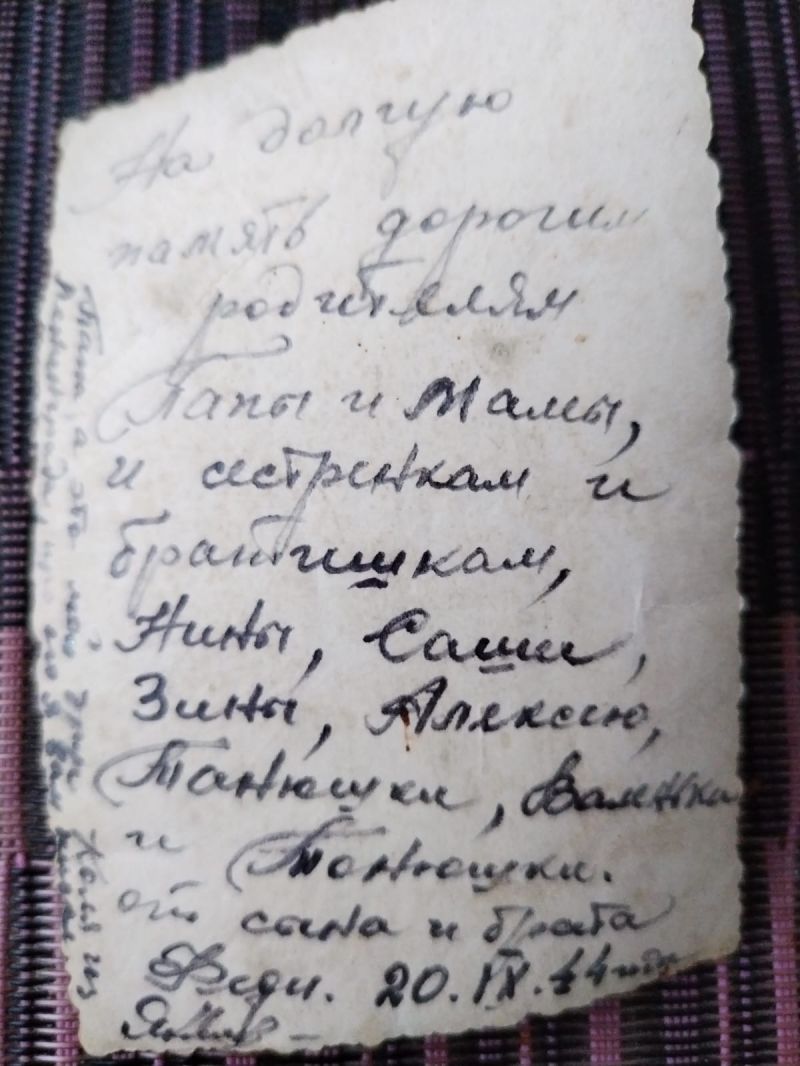 На долгую
память дорогим
родителям
Папы и Мамы,
и сестренкам и
братишкам,
Нины, Саши,
Зины, Алексею,
Танюшки, Валиньки
и Танюшки.
от сына и брата
Феди. 20.IX.44 года
а это мой друг Коля из
Ленинграда, что я вам